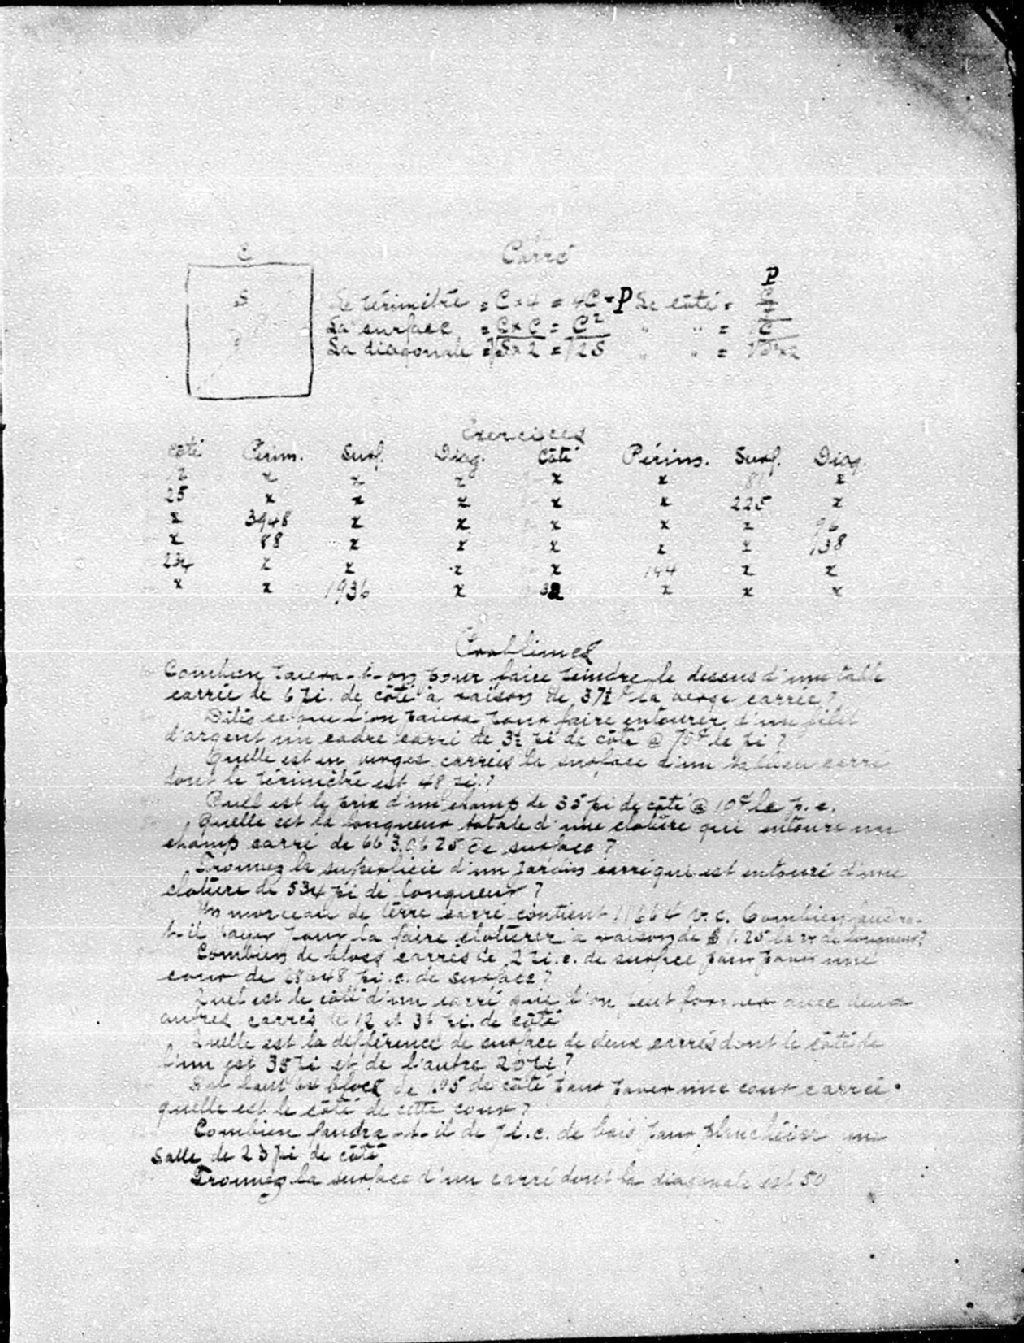 C
Carré
S
Le périmètre = C×4 = 4C = P Le côté = P/4
La surface = C×C = C² " " =
La diagonale = √S×2 = √2S " " =
Exercices
Côté Périm. Surf. Diag. Côté Périm. Surf. Diag.
12 x x x x x 81 x
25 x x x x x 225 x
x 3948 x x x x x 96
x 88 x x x x x 138
234 x x x x 144 x x
x x 1936 x 32 x x x
Problèmes
Combien paiera-t-on pour faire peindre le dessus d'une table
carrée de 6 pi. de côté à raison de 37½ la verge carrée?
Dites ce que l'on paiera pour faire entourer d'un filet
d'argent un cadre carré de 3½ pi de côté @ le pi?
Quelle est en verges carrées la surface d'un tableau carré
dont le périmètre est 48 pi.?
Quel est le prix d'un champ de 35 pi de côté @ 10¢ le p.c.
Quelle est la longueur totale d'une clôture qui entoure un
champ carré de de surface?
Trouvez la superficie d'un jardin carré qui est entouré d'une
clôture de 534 pi de longueur?
Un morceau de terre carré contient v.c. Combien faudra-
t-il payer pour la faire clôturer à raison de $1.25 la v de longueur?
Combien de blocs carrés de 2 pi.c. de surface pour paver une
cour de pi.c. de surface?
Quel est le côté d'un carré que l'on peut former avec deux
autres carrés de 12 et 36 pi. de côté
Quelle est la différence de surface de deux carrés dont le côté de
l'un est 35 pi et de l'autre 25 pi?
blocs de .95 de côté pour paver une cour carrée.
quelle est le côté de cette cour?
Combien faudra-t-il de pi.c. de bois pour planchéier une
salle de 23 pi de côté
Trouvez la surface d'un carré dont la diagonale est 50